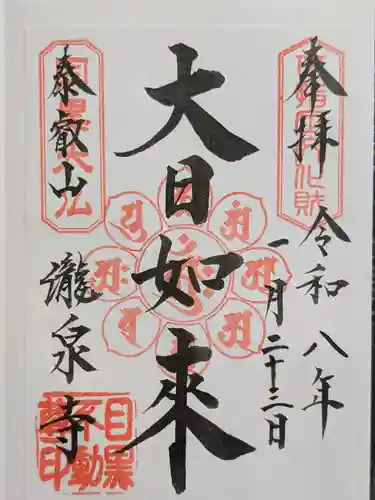 奉拝
令和八年
一月二十三日
大日如來
泰叡山
瀧泉寺
目黒
不動